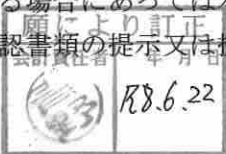 る場合にあっては
願により訂正
認書類の提示又は
会計責任者 年 月 日
R8.6.22